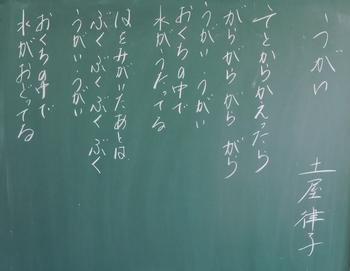 うがい
土屋律子
そとからかえったら
がらがらがらがら
うがい うがい
おくちの中で
水がうたってる
はをみがいたあとは
ぶくぶくぶくぶく
うがい うがい
おくちの中で
水がおどってる